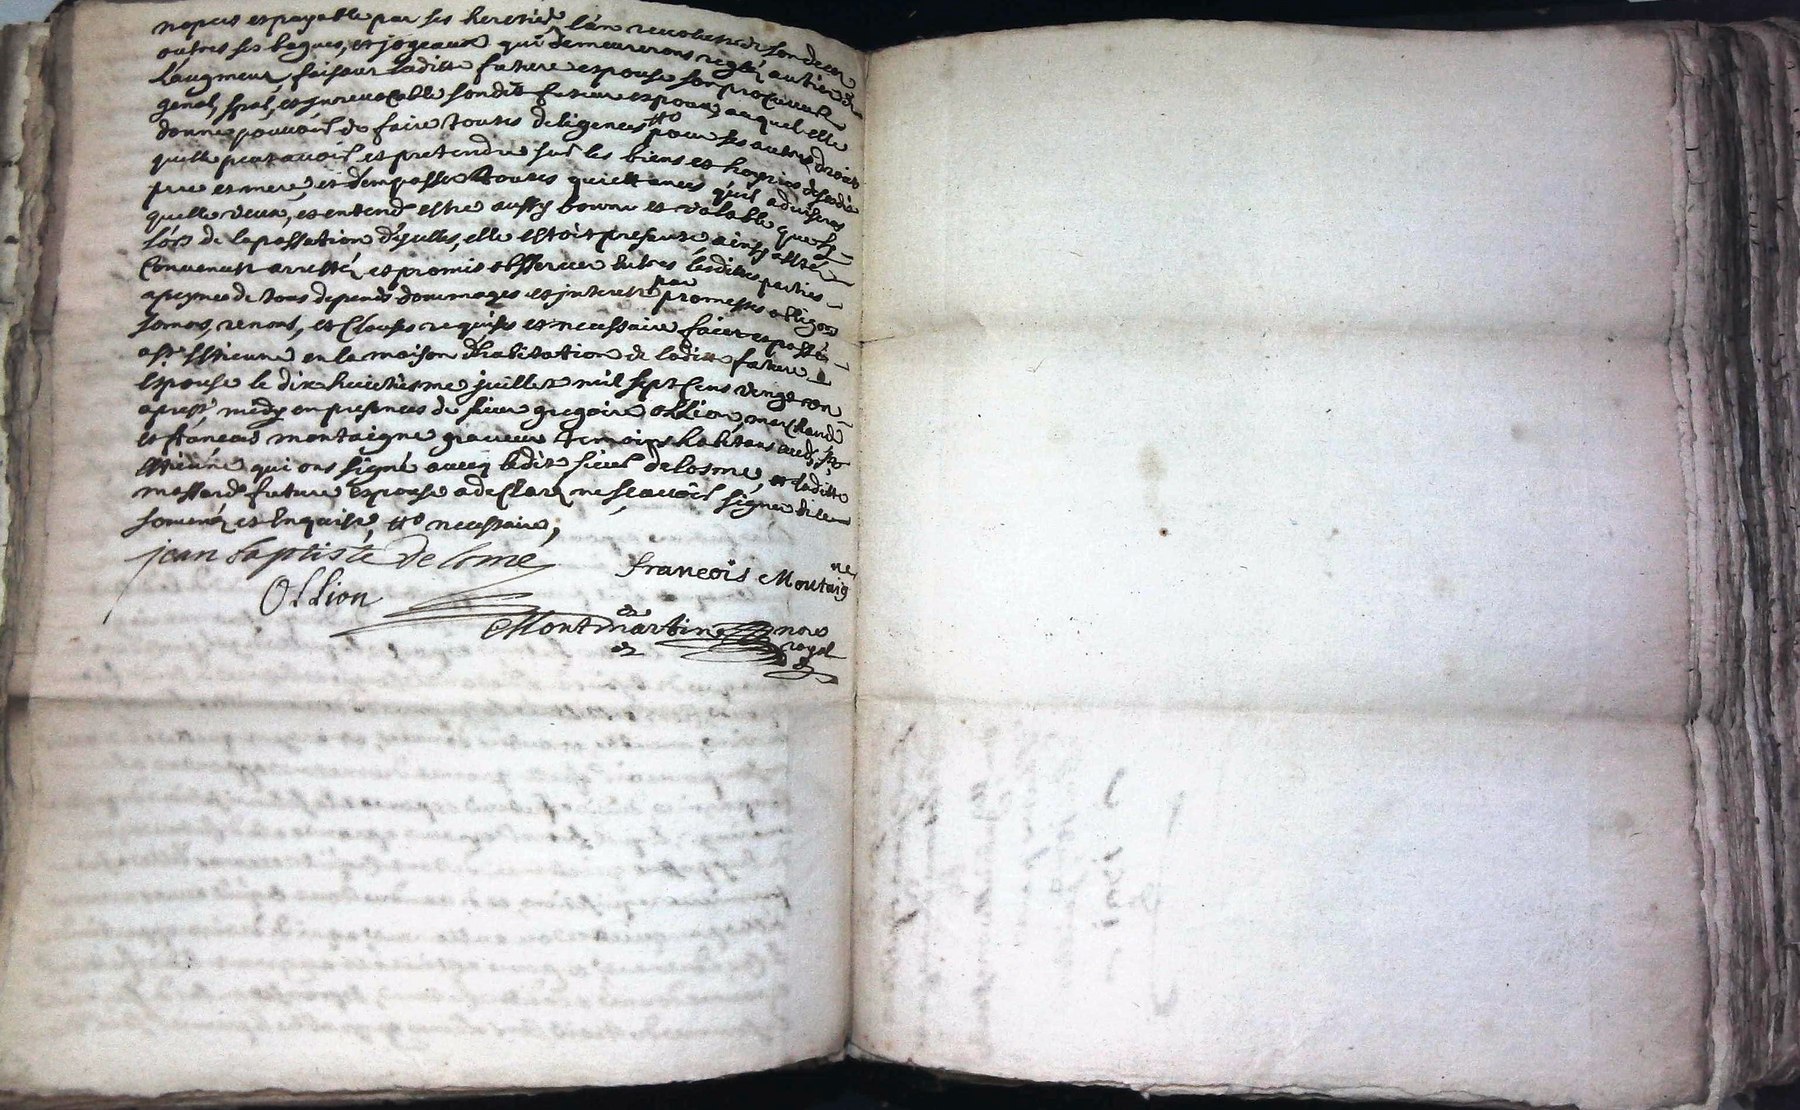 nopces et payable par ses heretiers l'an revolu de son deces
outres ses bagues, et joyeaux qui demeureront reglés au tier de
l'augment, faisant laditte future espouse son procureur
genal, spal, et jrrevocable sondit futur espoux, auquel elle
donne pouvoir de faire toutes deligences pour ses autres droits
quelle peut avoir et pretendre sur les biens et hoyries de sesdits
pere et mere, et d'en passer toutes quiettances qu'il advisera
quelle veut, et entend estre aussy bonne et valable que sy
lors de la passation d'jcelles, elle estoit presente ainsy a esté
Convenu arresté, et promis observer entres lesdittes parties
a peyne de tous depends dommages et jnterest par promesses oblig.on
somons, renons, et Clauses requises et necessaire fait et passé
a S.t Estienne en la maison d'habitation de laditte future
Espouse le dix huictiesme juillet mil sept Cens vingt un
apres midy en presences de sieur gregoire ollion, marchand
et françois montaigne graveur temoins habitans audit S.t
Estienne qui ont signé avecq ledit sieur delosme, et laditte
massard future Espouse a declaré ne sçavoir signer de ce
sommée et Enquise, necessaire,
jean baptiste de lome
françois Montaigne
Ollion
Montmartin nore
royal